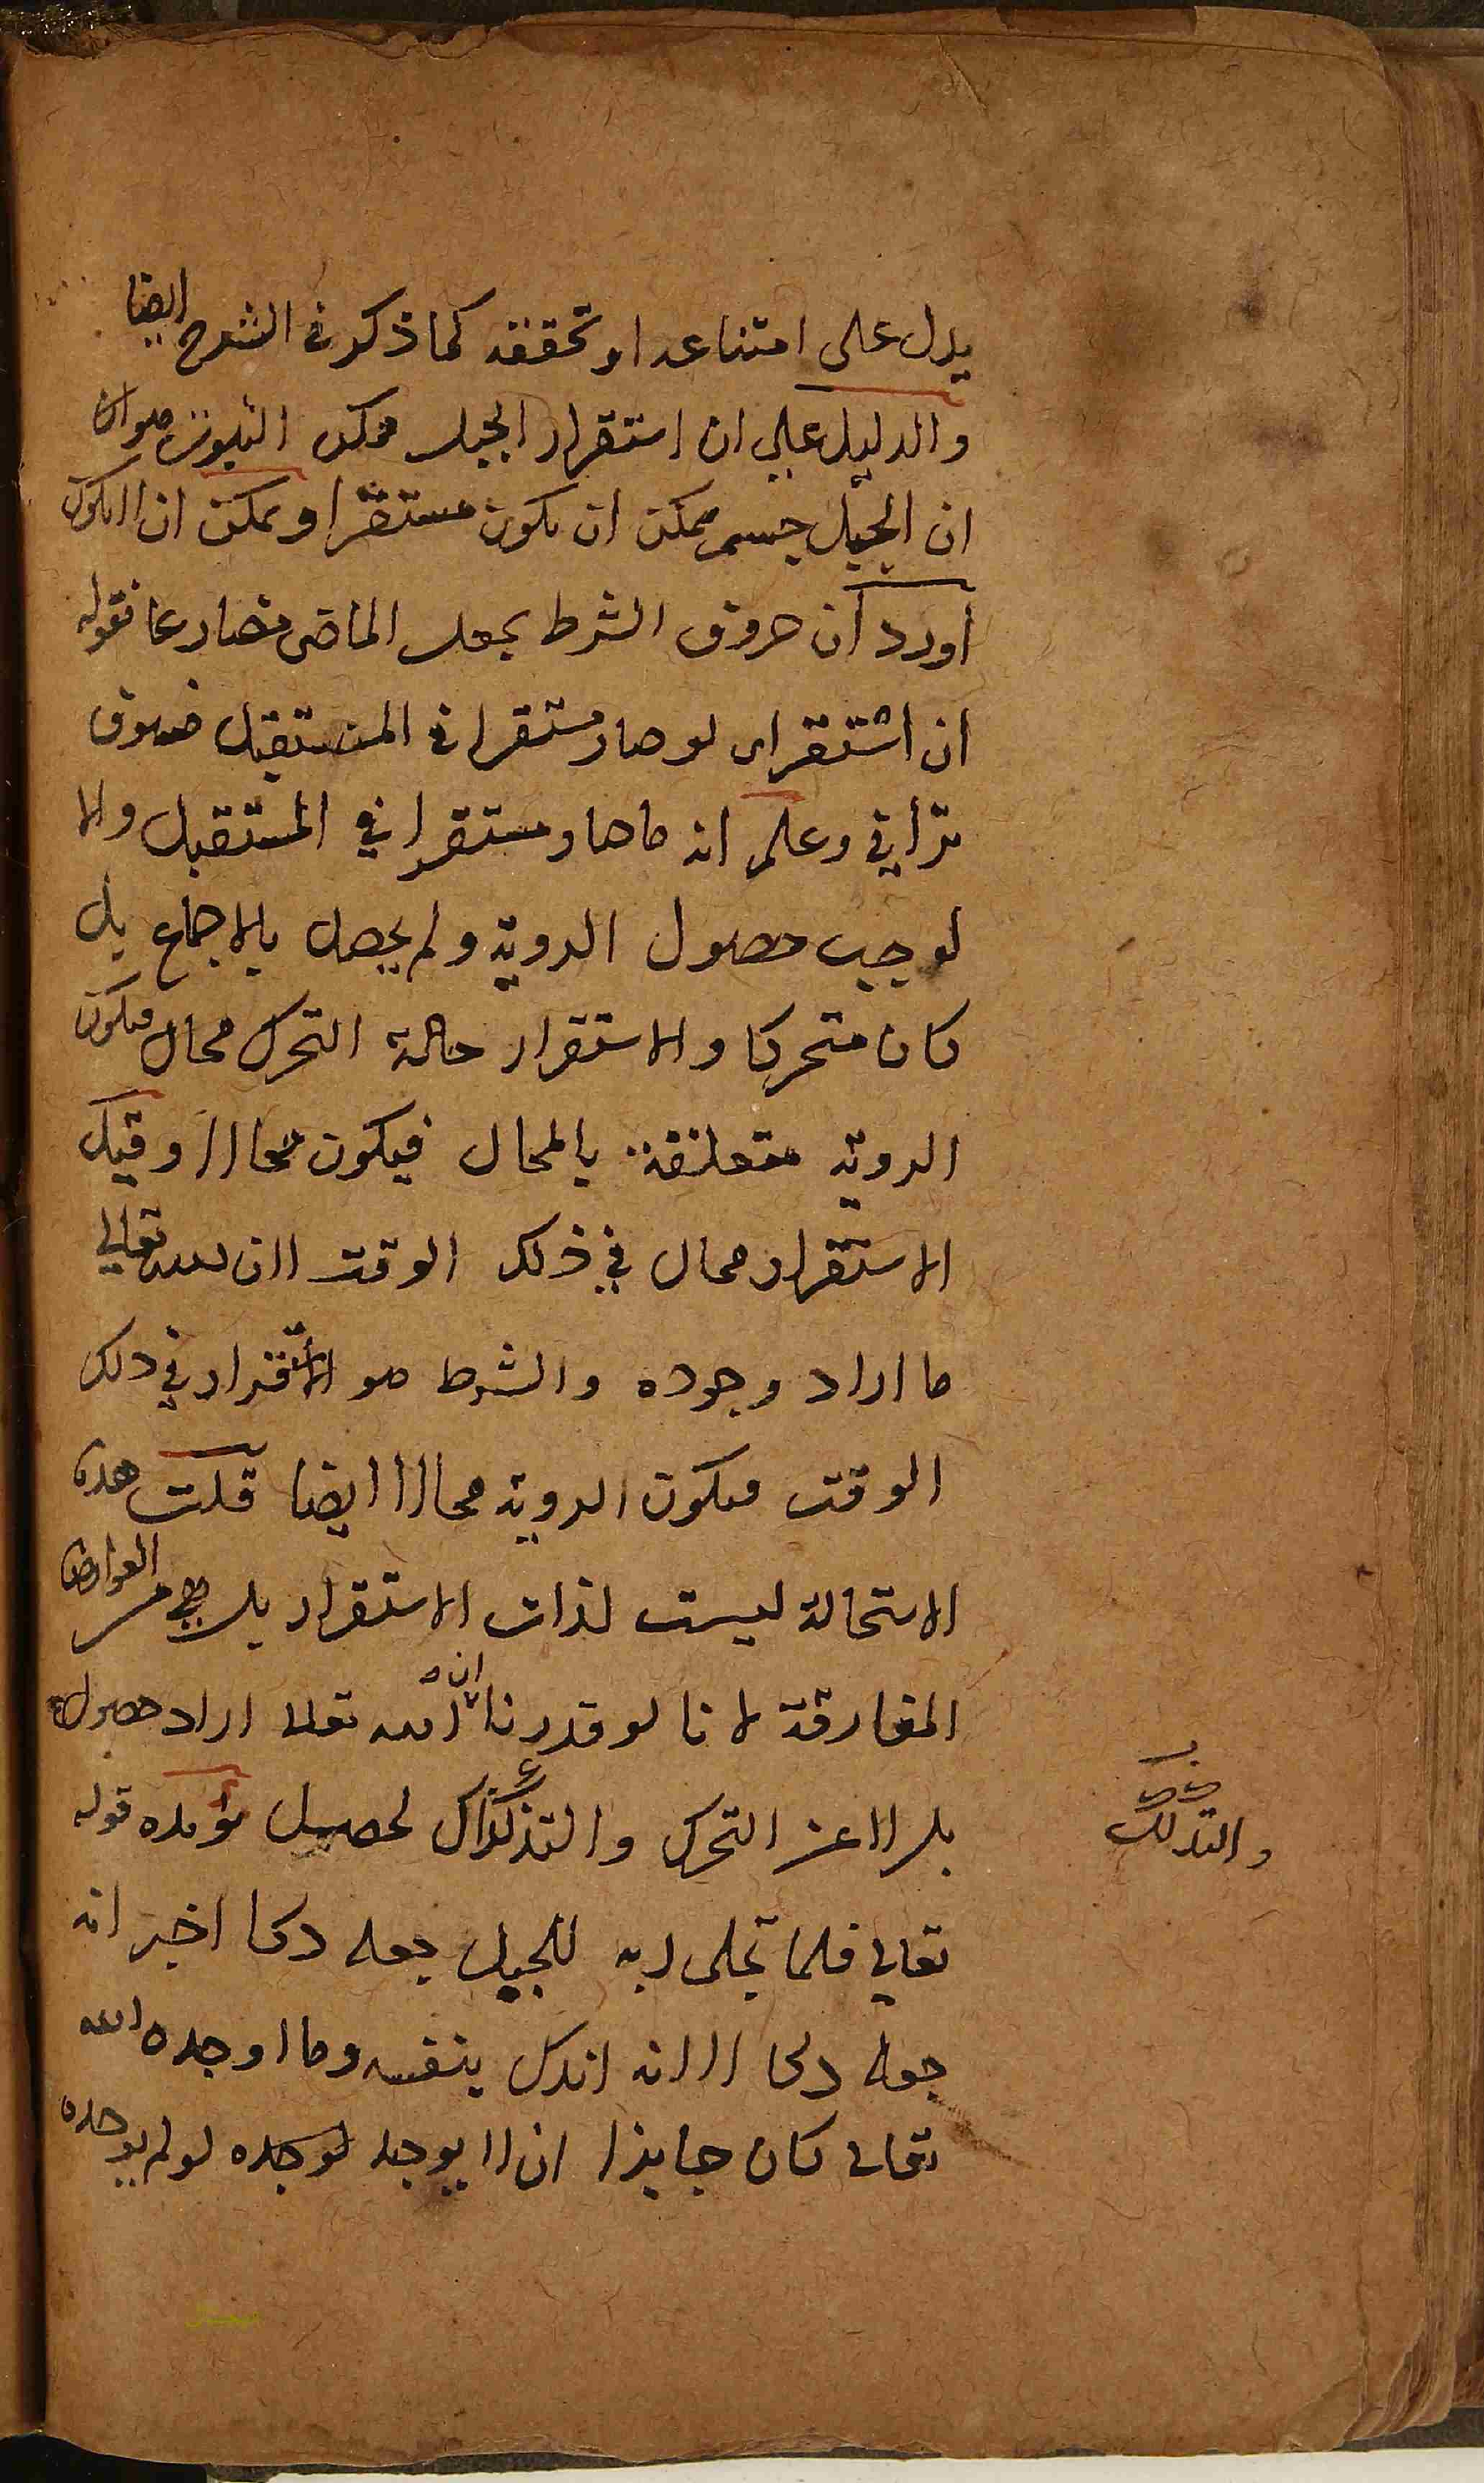 يدل على امتناعه او تحققه كما ذكر فى الشرح ايضا
والدليل علي ان استقرار الجبل ممكن الثبوت هو ان
ان الجبل جسم ممكن ان يكون مستقرا ويمكن ان لا يكون
أورد أن حروف الشرط يجعل الماضى مضارعا فقوله
ان استقر اى لو صار مستقرا فى المستقبل فسوف
ترانى وعلم انه ما صار مستقرا في المستقبل ولا
لوجب حصول الروية ولم يحصل بالاجماع بل
كان متحركا والاستقرار حالة التحرك محال فيكون
الروية متعلقة بالمحال فيكون محالا وقيل
الاستقرار محال في ذلك الوقت لان لله تعالي
ما اراد وجوده والشرط هو الاستقرار في ذلك
الوقت فيكون الروية محالا ايضا قلت هذه
الاستحالة ليست لذات الاستقرار بل العوارض
المفارقة لانا لو قدرنا ان الله تعالى اراد حصول
بدلا عن التحرك والتذكك لحصل يؤيده قوله
والتدلك
تعالي فلما تجلى ربه للجبل جعله دكا اخبر انه
جعله دكا لا انه اندك بنفسه وما اوجده الله
تعالى كان جايزا ان لا يوجد لوجده لو لم يوجده